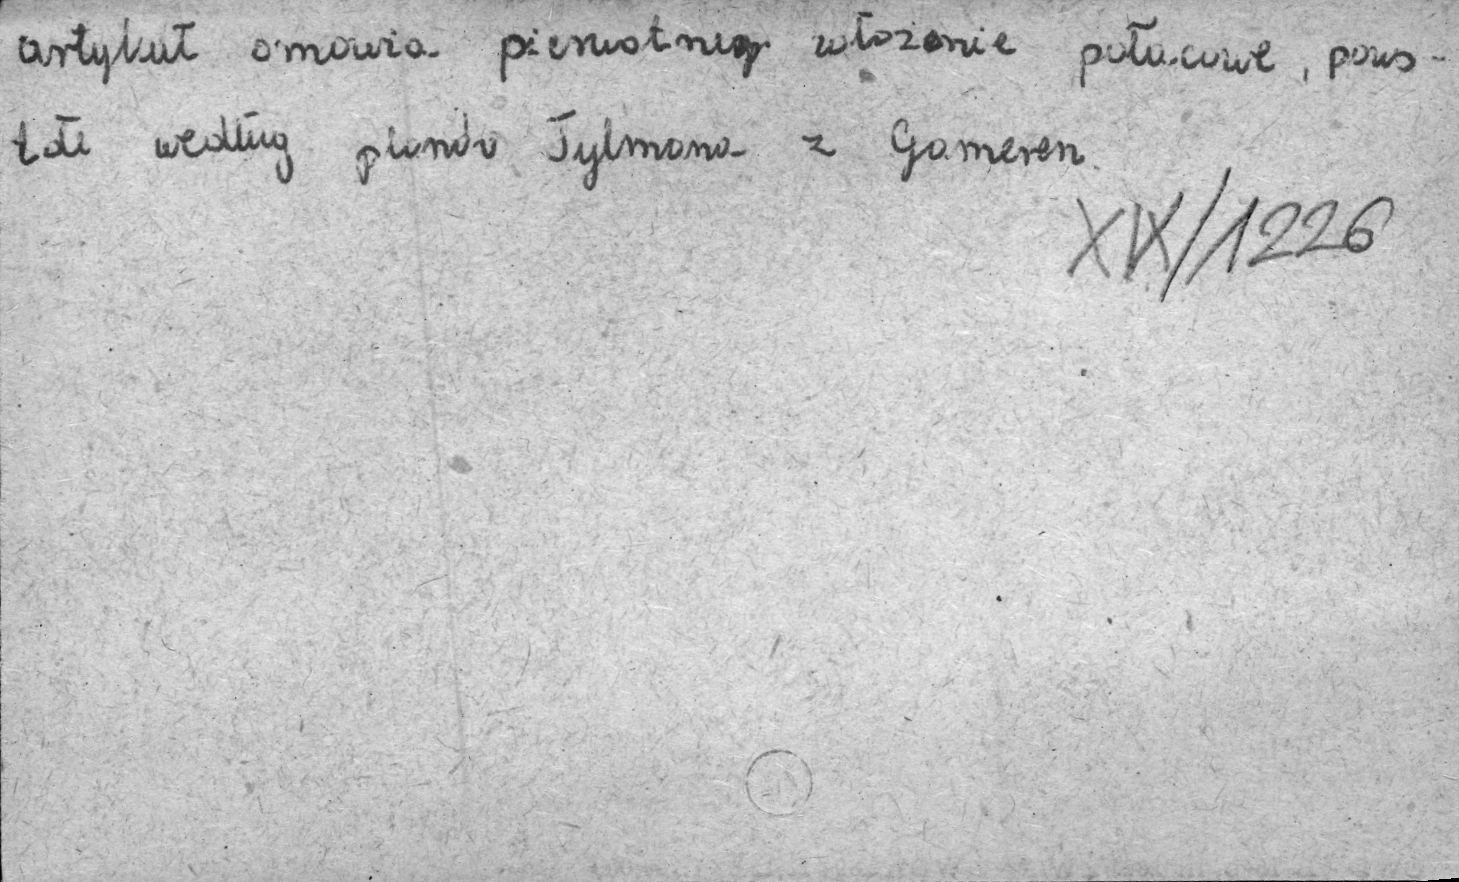 artykuł omawia pierwotne założenie pałacowe, pows-
tałe według planów Tylmana z Gameren.
XIX/1226